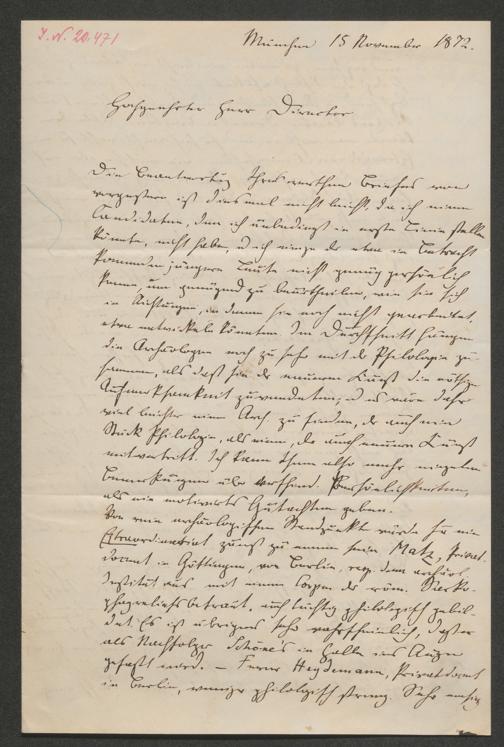 I. N. 20.471
München 15 November 1872.
Hochgeehrter Herr Director
Die Beantwortung Ihres werthen Briefes von
vorgestern ist diesmal nicht leicht, da ich einen
Candidaten, den ich unbedingt in erste Linie stellen
könnte, nicht habe, u ich einige der etwa in Betracht
kommenden jüngeren Leute nicht genug persönlich
kenne, um genügend zu beurtheilen, wie sie sich
in Richtungen, in denen sie noch nicht gearbeitet,
etwa entwickeln könnten. Im Durchschnitt hängen
die Archäologen noch zu sehr mit der Philologie zu-
sammen, als daß sie der neueren Kunst die nöthige
Aufmerksamkeit zuwendeten; u es wäre daher
viel leichter einen Arch. zu finden, der auch ein
Stück Philologie, als einen, der auch neuere Kunst
mitvertritt. Ich kann Ihnen also mehr einzelne
Bemerkungen über Persönlichkeiten,
als ein motivirtes Gutachten geben.
Von rein archäologischem Standpunkte würde für ein
Extraordinariat zunächst zu nennen sein Matz, Privat-
docent in Göttingen, von Berlin, resp. dem archäol.
Institut aus mit einem Corpus der röm. Sarko-
phagreliefs betraut, auch tüchtig philologisch gebil-
det. Es ist übrigens sehr wahrscheinlich, daß er
als Nachfolger Schöne's in Halle ins Auge
gefaßt wird. – Ferner Heydemann, Privatdocent
in Berlin, weniger philologisch streng. Sehr